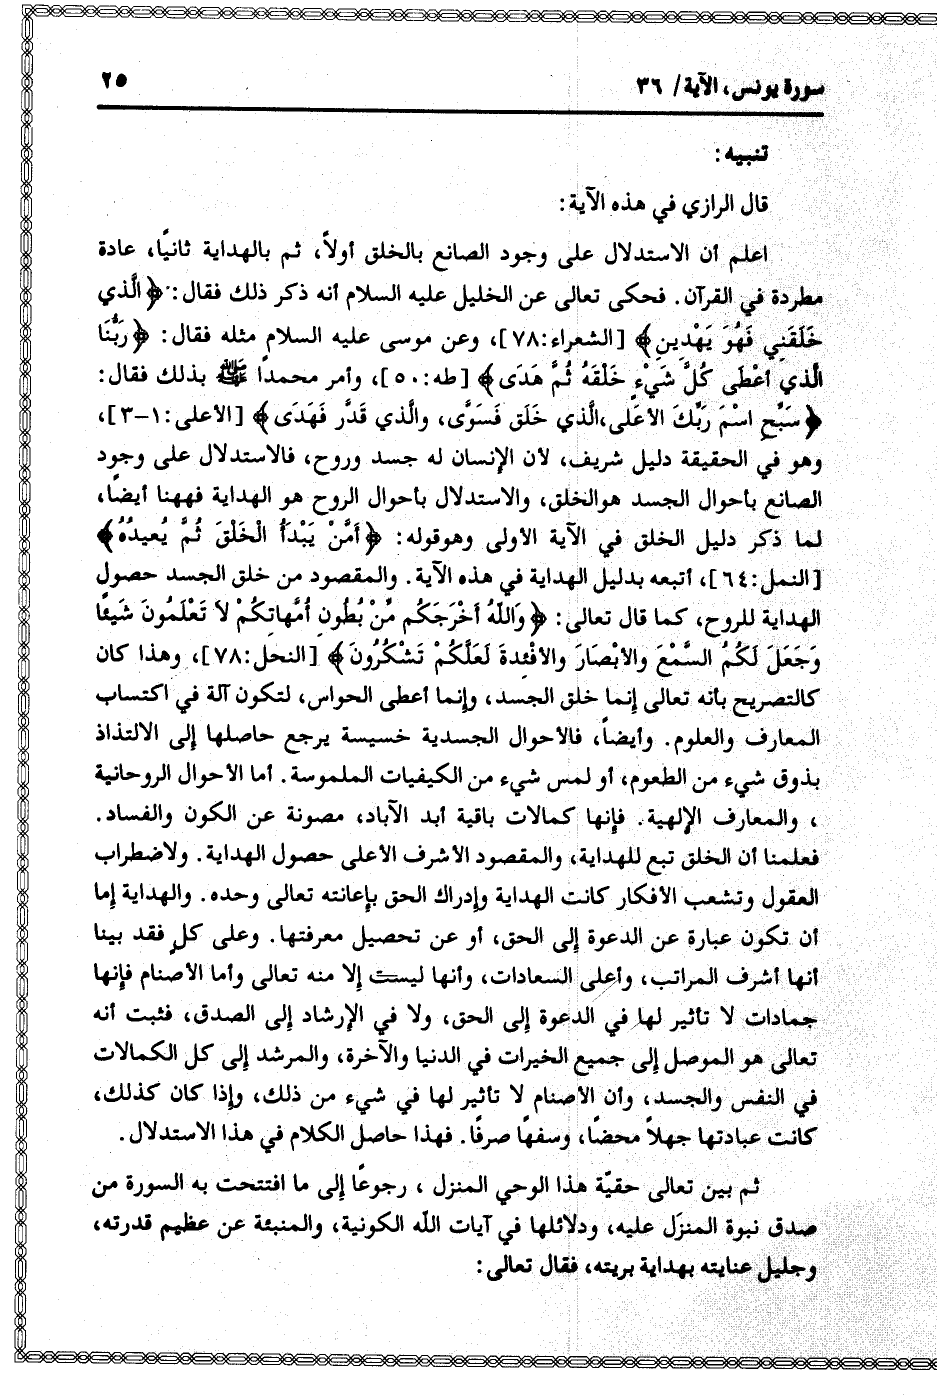 سورة يونس، الآية/ ٣٦
٢٥
تنبيه:
قال الرازي في هذه الآية:
اعلم أن الاستدلال على وجود الصانع بالخلق أولاً، ثم بالهداية ثانيًا، عادة
مطردة في القرآن. فحكى تعالى عن الخليل عليه السلام أنه ذكر ذلك فقال: ﴿الَّذي
خَلَقَنِي فَهُوَ يَهْدِينِ﴾ [الشعراء:٧٨]، وعن موسى عليه السلام مثله فقال: ﴿رَبُّنَا
الَّذي أعْطَى كُلَّ شَيْءٍ خَلْقَهُ ثُمَّ هَدَى﴾ [طه:٥٠]، وأمر محمداً ﷺ بذلك فقال:
﴿سَبِّحِ اسْمَ رَبِّكَ الأعَلى،الَّذي خَلَق فَسَوَّى، والَّذي قَدَّر فَهَدَى﴾ [الأعلى:١-٣]،
وهو في الحقيقة دليل شريف، لأن الإنسان له جسد وروح، فالاستدلال على وجود
الصانع بأحوال الجسد هوالخلق، والاستدلال بأحوال الروح هو الهداية فههنا أيضًا،
لما ذكر دليل الخلق في الآية الأولى وهوقوله: ﴿أمَّنْ يَبْدَأُ الْخَلْقَ ثُمَّ يُعيدُهُ﴾
[النمل:٦٤]، أتبعه بدليل الهداية في هذه الآية. والمقصود من خلق الجسد حصول
الهداية للروح، كما قال تعالى: ﴿واللّهُ أخْرَجَكُم مِّنْ بُطُونِ أُمَّهاتِكُمْ لاَ تَعْلَمُونَ شَيئًا
وَجَعَلَ لَكُمُ السَّمْعَ والأبْصَارَ والأفْئِدةَ لَعَلَّكُمْ تَشْكُرُونَ﴾ [النحل:٧٨]، وهذا كان
كالتصريح بأنه تعالى إنما خلق الجسد، وإنما أعطى الحواس، لتكون آلة في اكتساب
المعارف والعلوم. وأيضاً، فالأحوال الجسدية خسيسة يرجع حاصلها إلى الالتذاذ
بذوق شيء من الطعوم، أو لمس شيء من الكيفيات الملموسة. أما الأحوال الروحانية
، والمعارف الإلهية. فإنها كمالات باقية أبد الآباد، مصونة عن الكون والفساد.
فعلمنا أن الخلق تبع للهداية، والمقصود الأشرف الأعلى حصول الهداية. ولاضطراب
العقول وتشعب الأفكار كانت الهداية وإدراك الحق بإعانته تعالى وحده. والهداية إما
أن تكون عبارة عن الدعوة إلى الحق، أو عن تحصيل معرفتها. وعلى كلٍ فقد بينا
أنها أشرف المراتب، وأعلى السعادات، وأنها ليست إلا منه تعالى وأما الأصنام فإنها
جمادات لا تأثير لها في الدعوة إلى الحق، ولا في الإرشاد إلى الصدق، فثبت أنه
تعالى هو الموصل إلى جميع الخيرات في الدنيا والآخرة، والمرشد إلى كل الكمالات
في النفس والجسد، وأن الأصنام لا تأثير لها في شيء من ذلك، وإذا كان كذلك،
كانت عبادتها جهلاً محضًا، وسفهًا صرفًا. فهذا حاصل الكلام في هذا الاستدلال.
ثم بين تعالى حقيّة هذا الوحي المنزل ، رجوعًا إلى ما افتتحت به السورة من
صدق نبوة المنزَل عليه، ودلائلها في آيات اللّه الكونية، والمنبئة عن عظيم قدرته،
وجليل عنايته بهداية بريته، فقال تعالى: